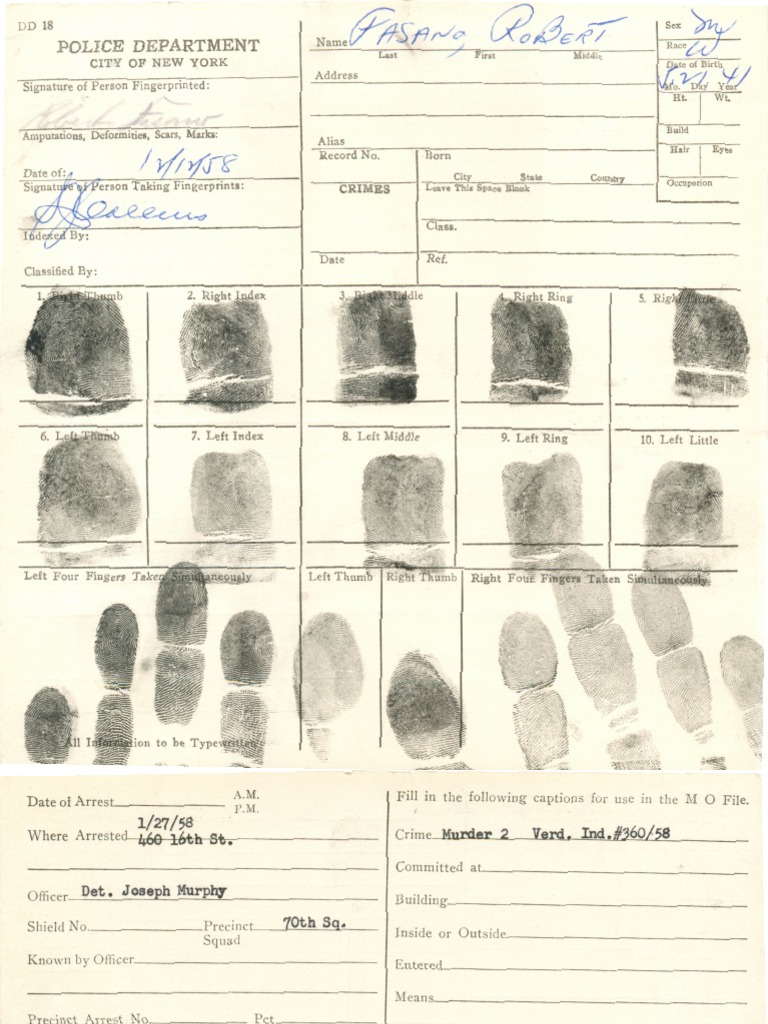 DD 18
POLICE DEPARTMENT
CITY OF NEW YORK
Signature of Person Fingerprinted:
Robert Fasano
Amputations, Deformities, Scars, Marks:
Date of: 12/12/58
Signature of Person Taking Fingerprints:
Indexed By:
Classified By:
Name FASANO, ROBERT
Last First Middle
Address
Alias
Record No.
CRIMES
Date
Born
City State Country
Leave This Space Blank
Class.
Ref.
Sex M
Race W
Date of Birth
5 21 41
Mo. Day Year
Ht. Wt.
Build
Hair Eyes
Occupation
1. Right Thumb 2. Right Index 3. Right Middle 4. Right Ring 5. Right Little
6. Left Thumb 7. Left Index 8. Left Middle 9. Left Ring 10. Left Little
Left Four Fingers Taken Simultaneously Left Thumb Right Thumb Right Four Fingers Taken Simultaneously
All Information to be Typewritten
Date of Arrest A.M.
P.M.
1/27/58
Where Arrested 460 16th St.
Officer Det. Joseph Murphy
Shield No. Precinct 70th Sq.
Squad
Known by Officer
Precinct Arrest No. Pct.
Fill in the following captions for use in the M O File.
Crime Murder 2 Verd. Ind.#360/58
Committed at
Building
Inside or Outside
Entered
Means